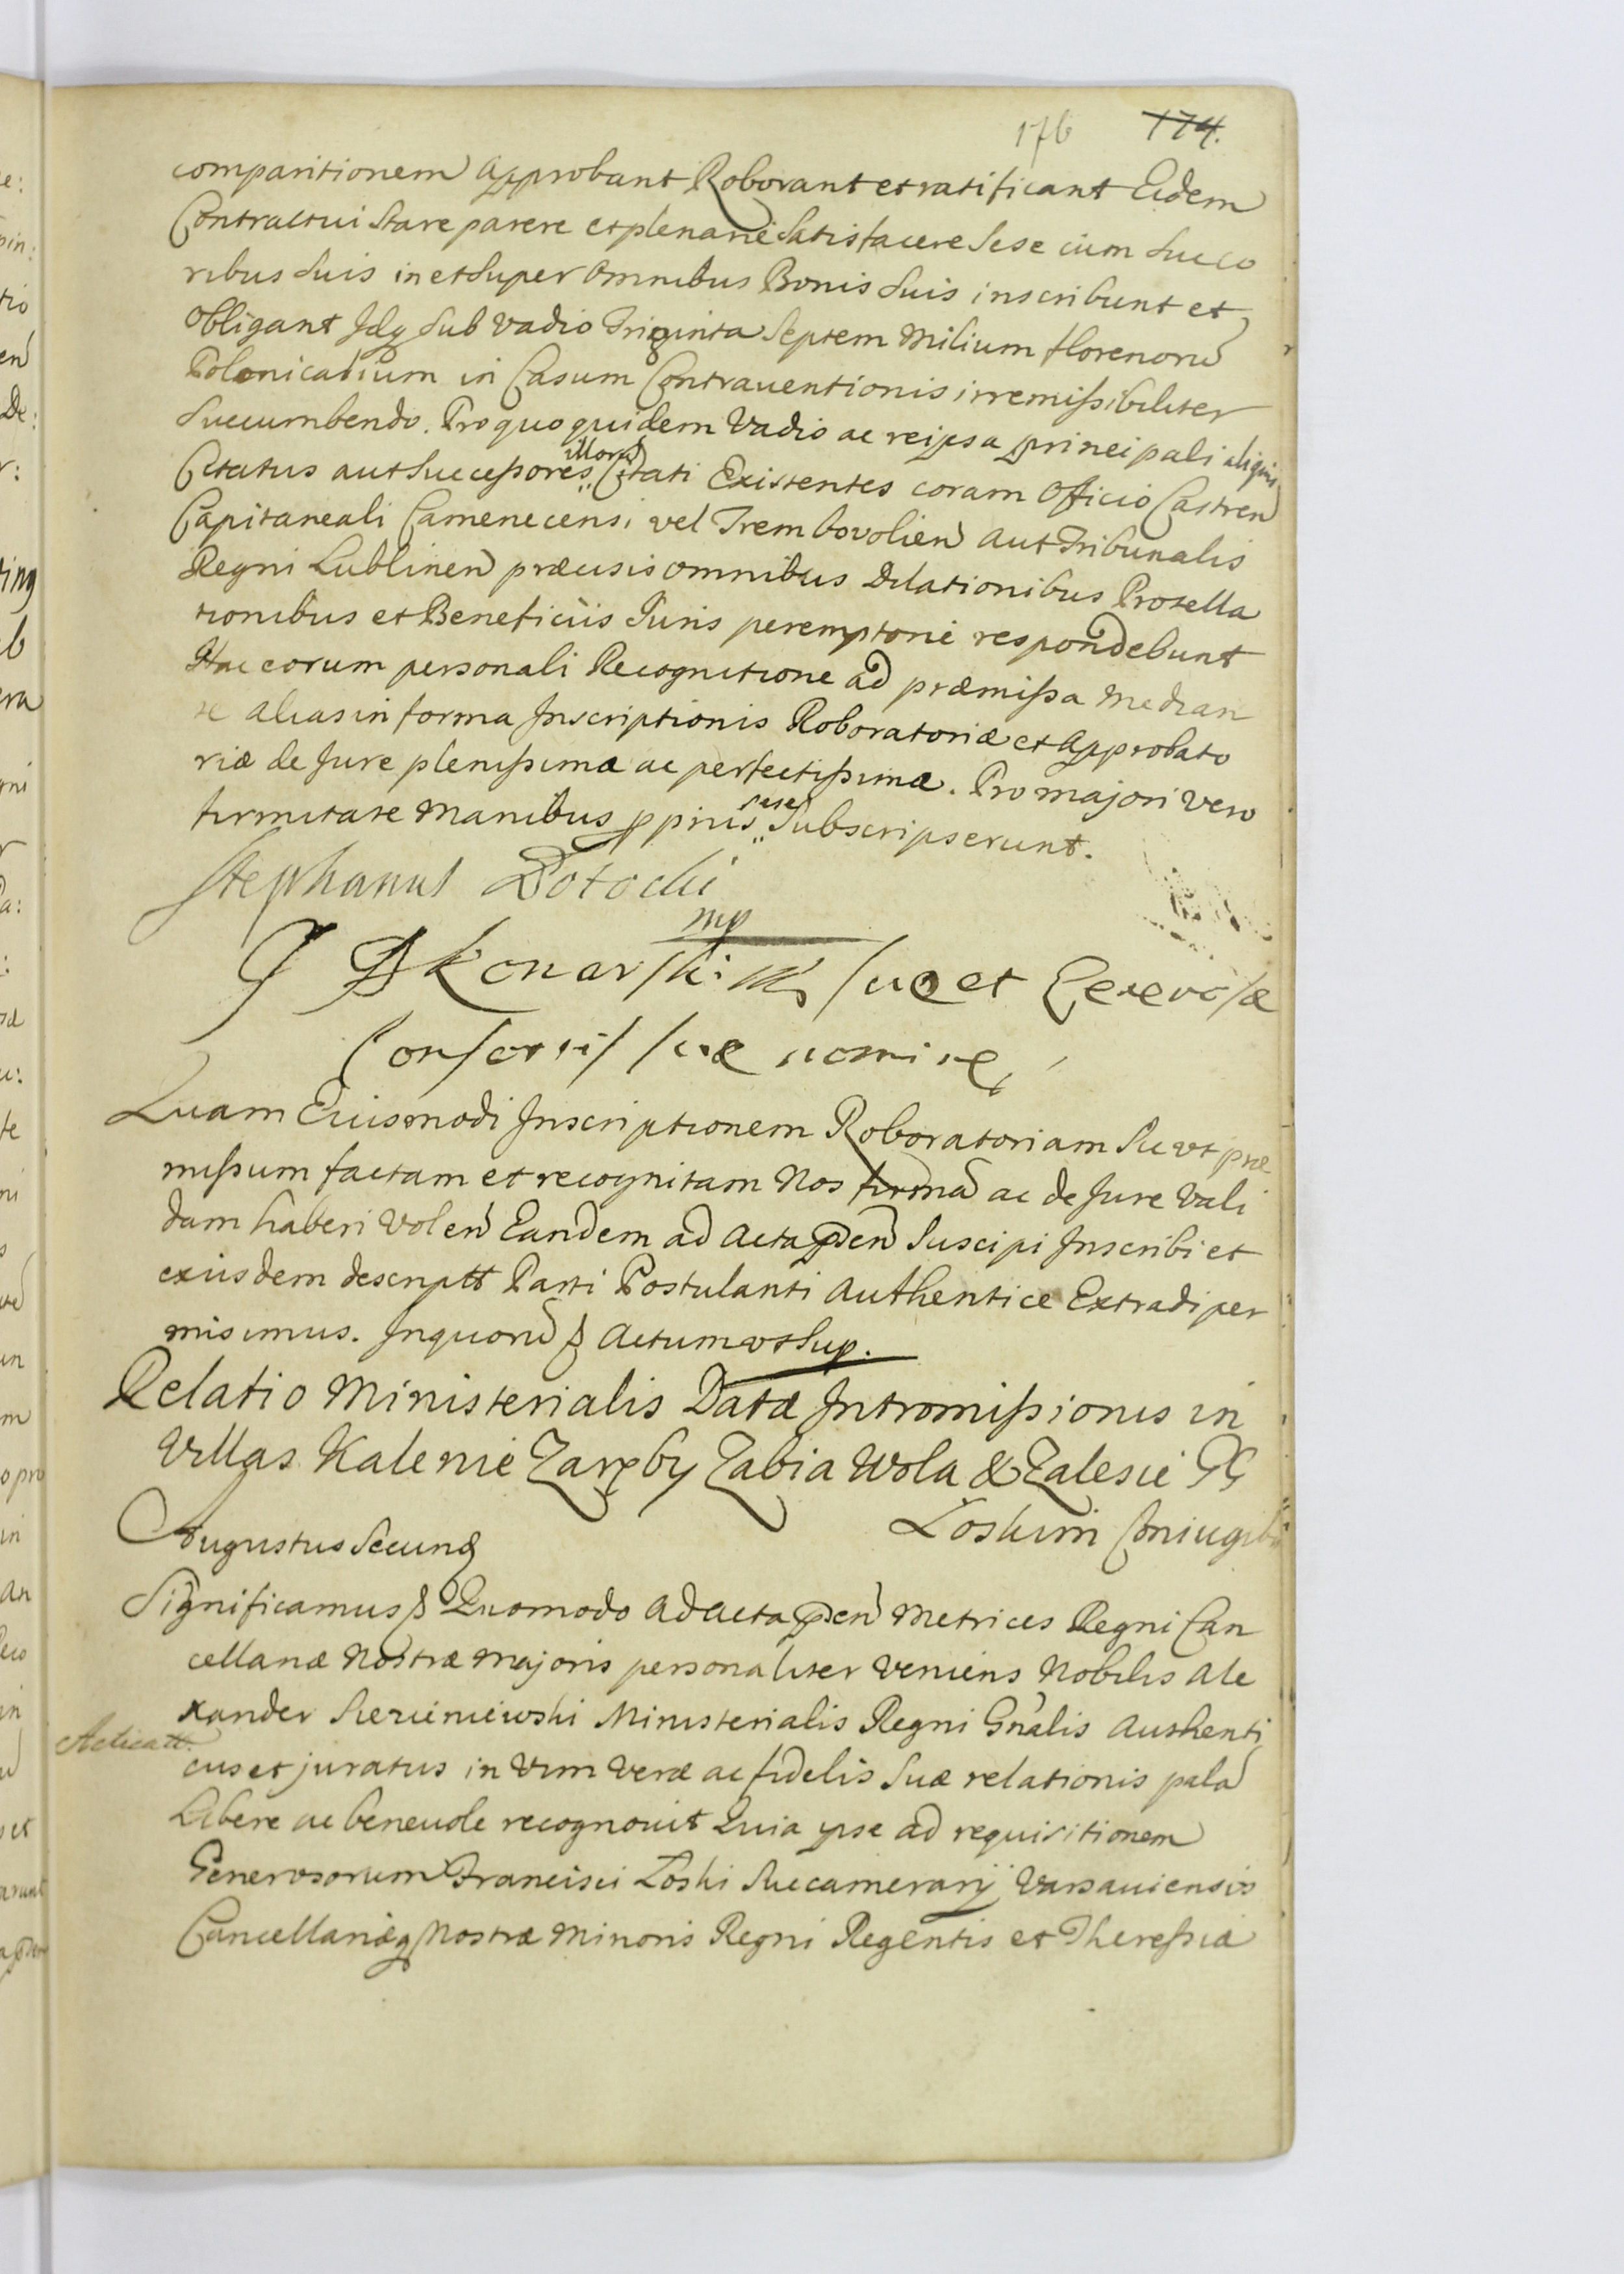 176 174.
comparitionem Approbant Roborant et ratificant Eidem
Contractui Stare parere et plenarie Satisfacere Sese cum Succo
ribus Suis in et Super Omnibus Bonis Suis inscribunt et
Obligant Idq Sub Vadio Triginta Septem Milium florenorũ
Polonicalium in Casum Contrauentionis irremissibiliter
Succumbendo. Pro quo quidem Vadio ac re ipsa principali aliquis
illorũ
Citatus aut Successores Citati Existentes coram Officio Castren
Capitaneali Camenecensi vel Trembovolien aut Tribunalis
Regni Lublinen præcisis omnibus Dilationibus Protella
tionibus et Beneficiis Juris peremptorie respondebunt
Hac eorum personali Recognitione ad præmissa Median
te alias in forma Inscriptionis Roboratoriæ et Approbato
riæ de Jure plenissimæ ac perfectissimæ. Pro majori vero
sese
firmitate Manibus ppriis Subscripserunt.
Stephanus Potocki
mp
Konarski suo et Generosæ
Consortis suæ nomine
Quam Eiusmodi Inscriptionem Roboratoriam Sic vt præ
missum factam et recognitam Nos firmã ac de Jure Vali
dam haberi Volen Eandem ad Acta pñ Suscipi Inscribi et
exiusdem descriptt Parti Postulanti Authentice Extradi per
misimus. In quorũ Actum vt Sup.
Relatio Ministerialis Datæ Intromissionis in
Villas Kalenie Zaręby Zabia Wola & Zalesie GG
Łoskim Coniugibus
Augustus Secund
Significamus Quomodo Ad Acta pñ Metrices Regni Can
cellariæ Nostræ Majoris personaliter Veniens Nobilis Ale
xander Skerieniewski Ministerialis Regni Gnalis Authenti
Acticatt.
cus et juratus in Vim Veræ ac fidelis Suæ relationis palã
Libere ac beneuole recognouit Quia ipse ad requisitionem
Generosorum Francisci Łoski Succamerarij Varsauiensis
Cancellariæq Nostræ Minoris Regni Regentis et Theressiæ